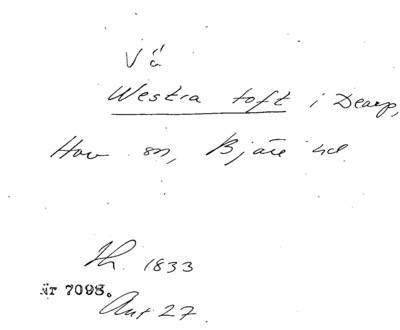 Vä
Westra toft i Dearp,
Hov sn, Bjäre hd
Lh. 1833
år 7098.
Ant 27.